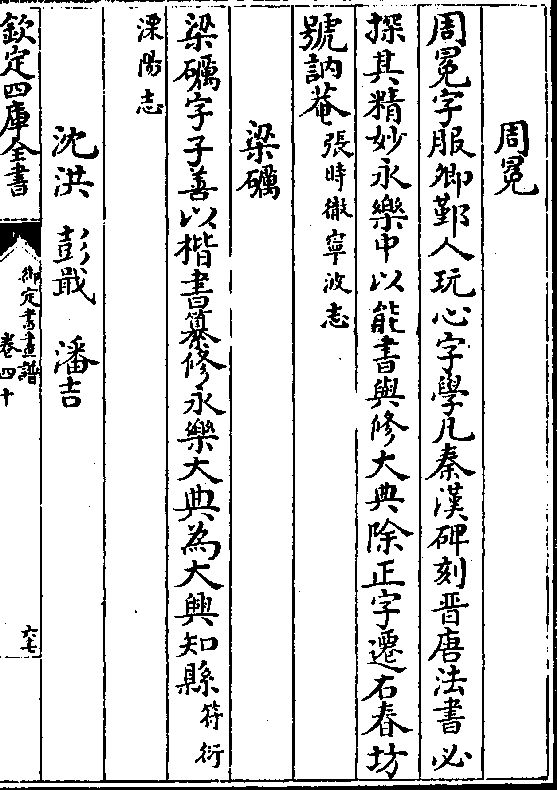 周冕
周冕字服卿鄞人玩心字學凡秦漢碑刻晋唐法書必
探其精妙永樂中以能書與修大典除正字遷右春坊
號訥菴張時徹寧波志
梁礪
梁礪字子善以楷書纂修永樂大典為大興知縣符衍
溧陽志
沈洪 彭戩 潘吉
欽定四庫全書
御定書畫譜
卷四十
六七